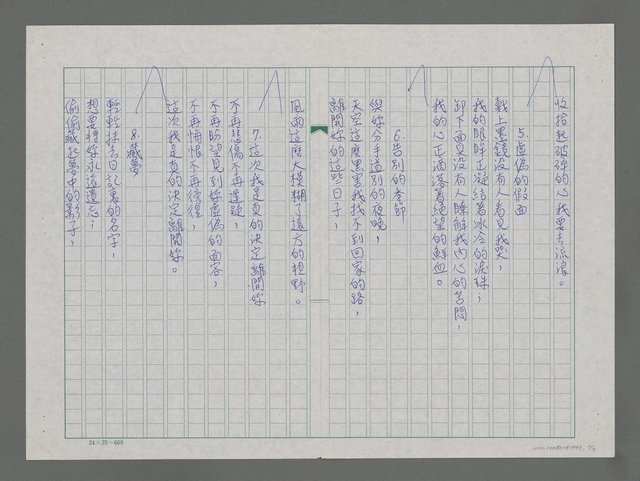 收拾起破碎的心我要去流浪。
5.虛偽的假面
戴上黑鏡沒有人看見我哭，
我的眼眸正凝結著冰冷的淚珠，
卸下面具沒有人瞭解我內心的苦悶，
我的心正滴落著絕望的鮮血。
6.告別的季節
與妳分手道別的夜晚，
天空這麼黑害我找不到回家的路，
離開妳的這些日子，
風雨這麼大模糊了遠方的視野。
7.這次我是真的決定離開妳
不再悲傷不再遲疑，
不再盼望見到妳虛偽的面容，
不再悔恨不再徬徨，
這次我是真的決定離開妳。
8.藏夢
輕輕抹去日記裏的名字，
想要將妳永遠遺忘；
偷偷藏起夢中的影子，
24×25=600